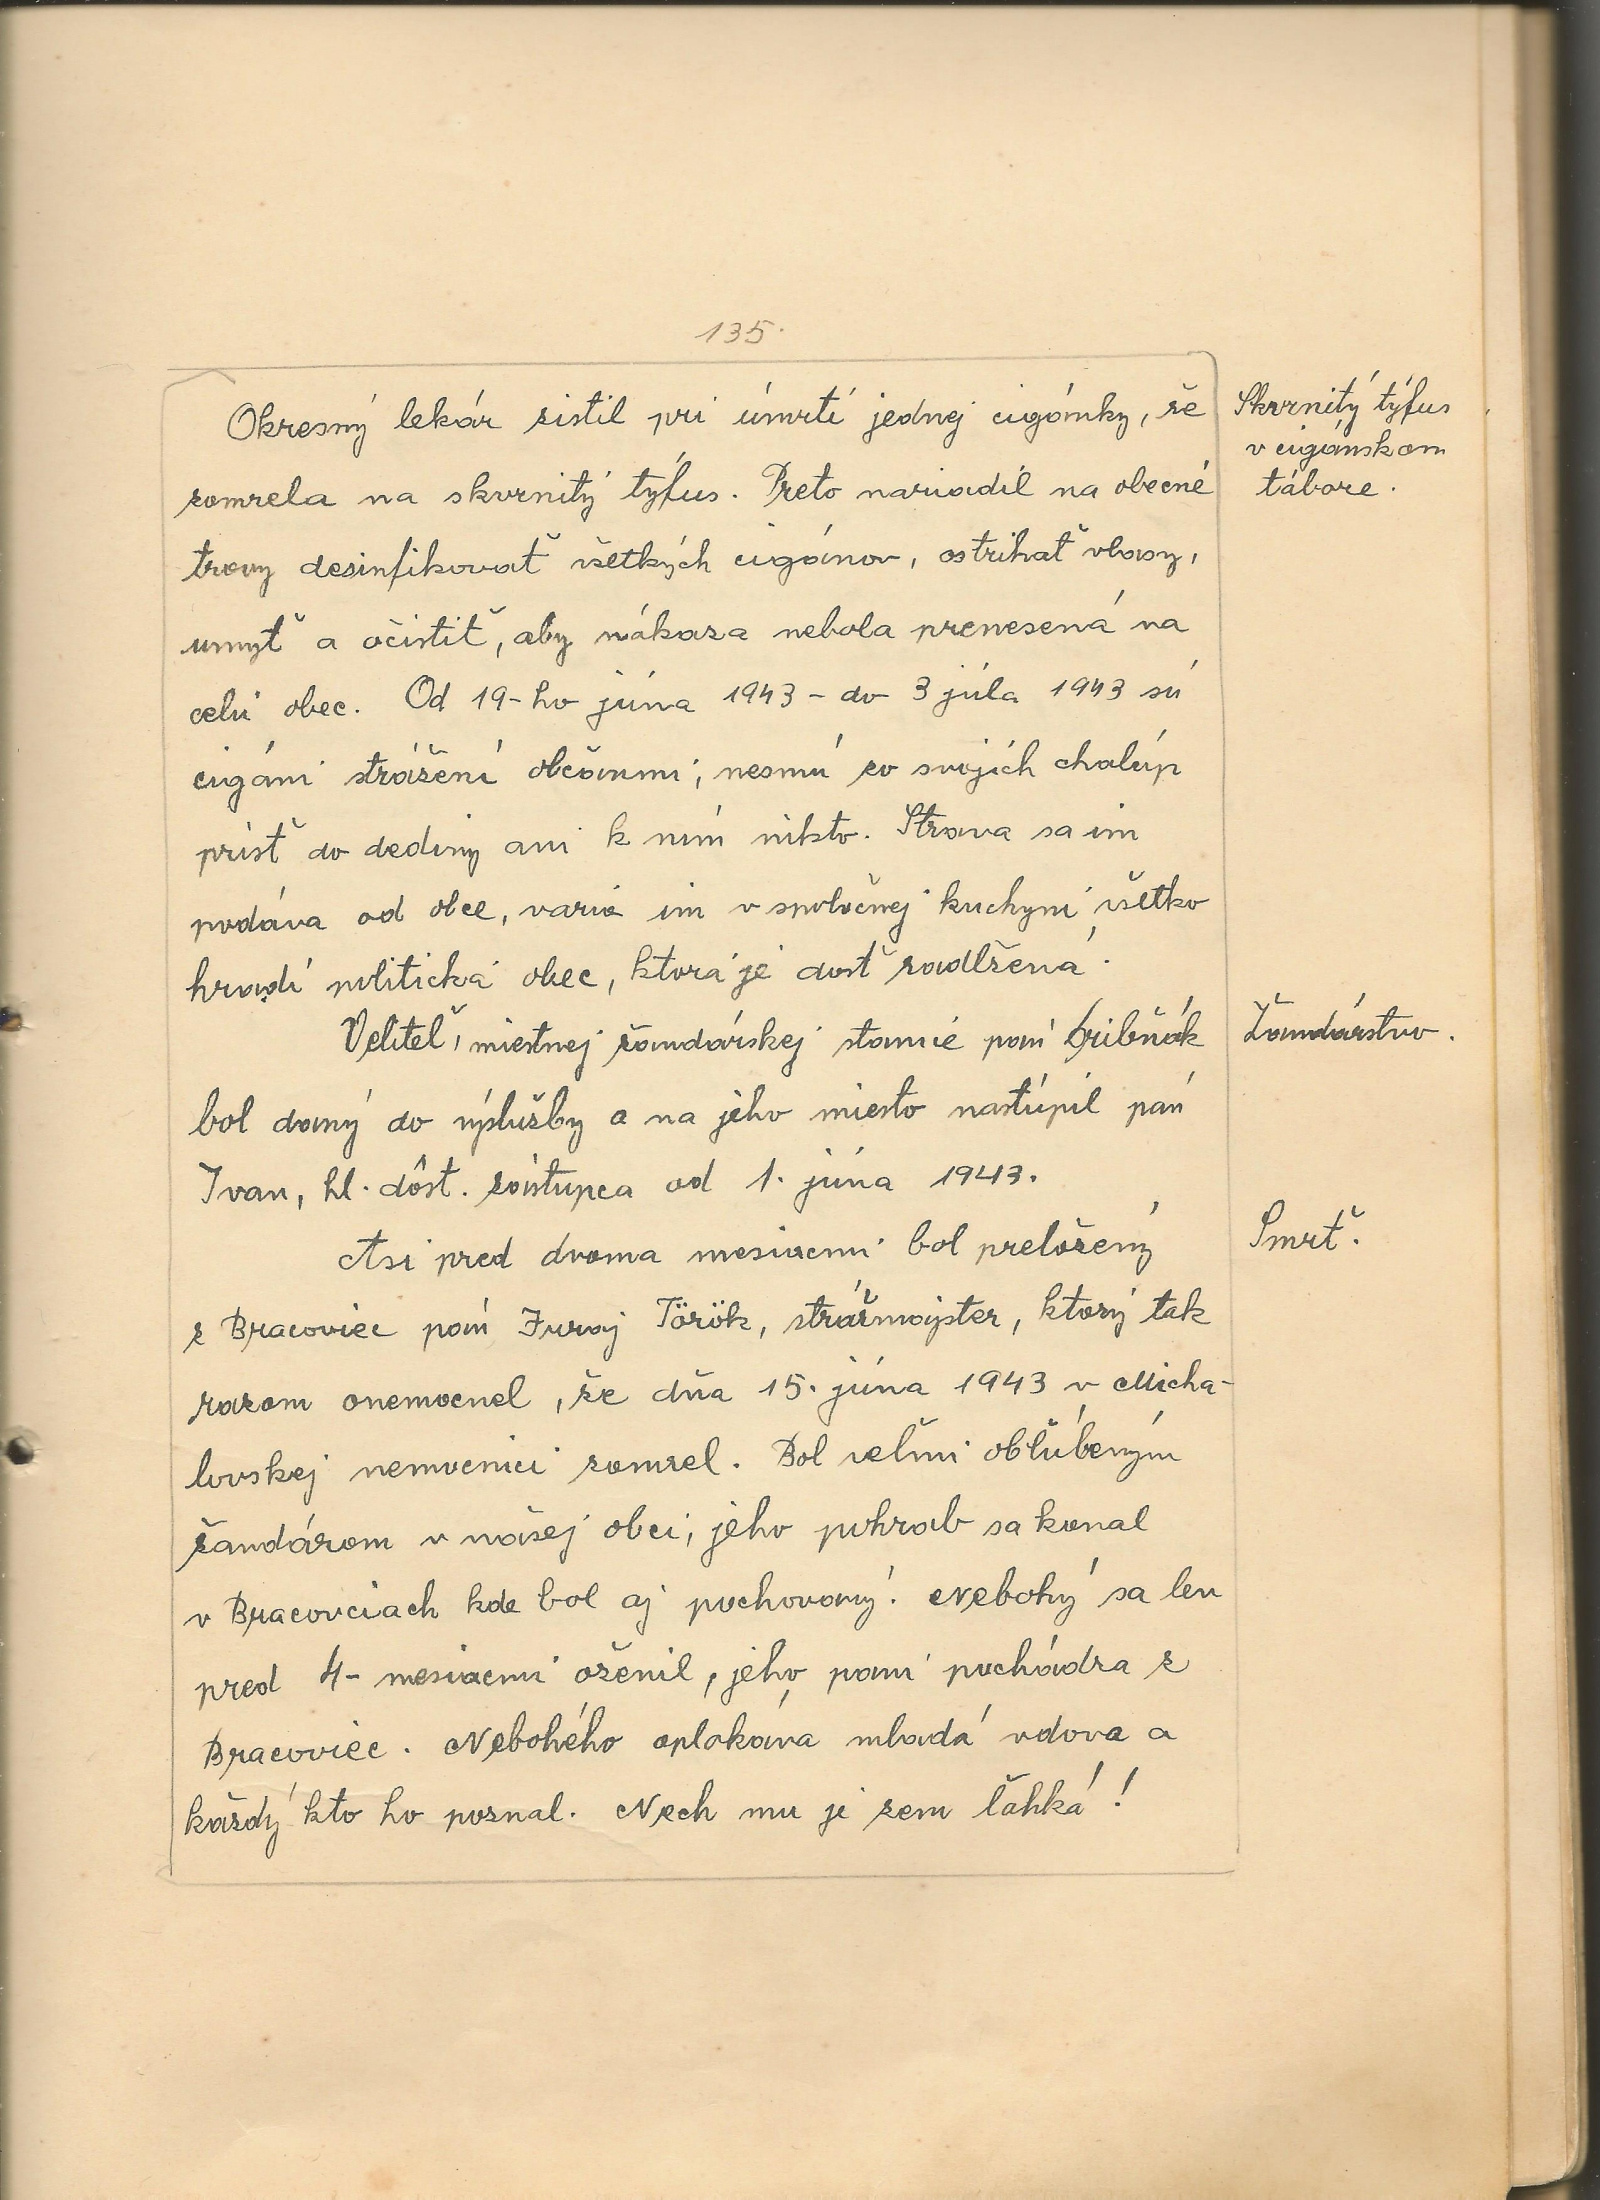 135.
Okresný lekár zistil pri úmrtí jednej cigánky, že
zomrela na skvrnitý týfus. Preto nariadil na obecné
trovy desinfikovať všetkých cigánov, ostrihať vlasy,
umyť a očistiť, aby nákaza nebola prenesená na
celú obec. Od 19-ho júna 1943 - do 3 júla 1943 sú
cigáni strážení občanmi, nesmú zo svojích chalúp
prísť do dediny ani k ním nikto. Strava sa im
podáva od obce, varia im v spoločnej kuchyni, všetko
hradí politická obec, ktorá je dosť zadlžená.
Veliteľ, miestnej žandárskej stanie pán Gribňák
bol daný do výslužby a na jeho miesto nastúpil pán
Ivan, hl. dôst. zástupca od 1. júna 1943.
Asi pred dvoma mesiacmi bol preložený
z Bracoviec pán Juraj Török, strážmajster, ktorý tak
razom onemocnel, že dňa 15. júna 1943 v Micha-
lovskej nemocnici zomrel. Bol veľmi obľúbeným
žandárom v našej obci, jeho pohrab sa konal
v Bracovciach kde bol aj pochovaný. Nebohý sa len
pred 4- mesiacmi oženil, jeho pani pochádza z
Bracoviec. Nebohého oplakáva mladá vdova a
každý kto ho poznal. Nech mu je zem ľahká!
Skvrnitý týfus
v cigánskom
tábore.
Žandárstvo.
Smrť.